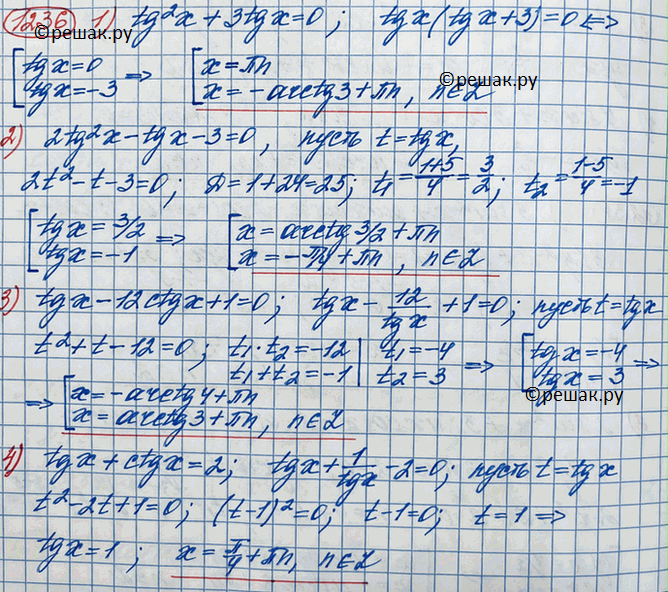 1236 1) tg²x + 3tgx = 0 ; tgx(tgx+3) = 0 <=>
©решак.ру
[tgx = 0 => [x = πn
[tgx = -3 [x = -arctg3 + πn, n∈Z
©решак.ру
2) 2tg²x - tgx - 3 = 0, пусть t = tgx,
2t² - t - 3 = 0; D = 1+24 = 25; t₁ = (1+5)/4 = 3/2; t₂ = (1-5)/4 = -1
[tgx = 3/2 => [x = arctg 3/2 + πn
[tgx = -1 [x = -π/4 + πn, n∈Z
3) tgx - 12ctgx + 1 = 0; tgx - 12/tgx + 1 = 0; пусть t = tgx
t² + t - 12 = 0; t₁·t₂ = -12 | t₁ = -4 => [tgx = -4 =>
t₁ + t₂ = -1 | t₂ = 3 [tgx = 3
©решак.ру
=> [x = -arctg4 + πn
[x = arctg3 + πn, n∈Z
4) tgx + ctgx = 2; tgx + 1/tgx - 2 = 0; пусть t = tgx
t² - 2t + 1 = 0; (t-1)² = 0; t - 1 = 0; t = 1 =>
tgx = 1 ; x = π/4 + πn, n∈Z
©решак.ру